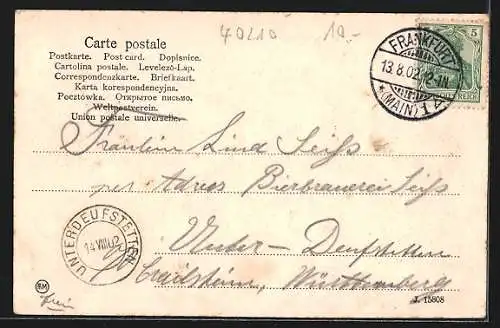 40210 10.-
Carte postale
Postkarte. Post card. Dopisnice.
Cartolina postale. Levelező-Lap.
Correspondenzkarte. Briefkaart.
Karta korespondencyjna.
Pocztówka. Открытое письмо.
Weltpostverein.
Union postale universelle.
FRANKFURT
13.8.02.12-1N.
*(MAIN) 1
5
REICH
Fräulein Lina Seiß
per Adres Bierbrauerei Seiß
Unter-Deufstetten
Crailsheim, Württemberg
UNTERDEUFSTETTEN
14 VIII 02
BM
frei
J. 15808